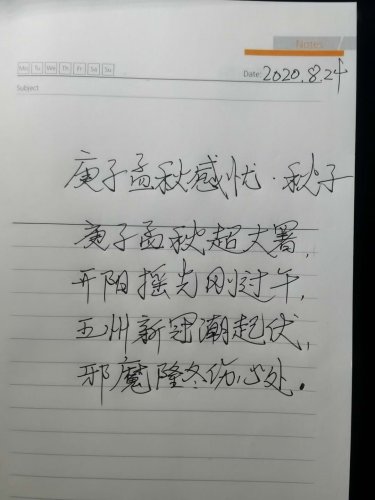 Notes
Mo Tu We Th Fr Sa Su
Date: 2020.8.24
Subject
庚子孟秋感忧·秋子
庚子孟秋超大署,
开阳摇光刚过午,
五州新冠潮起伏,
邪魔隆冬伤心处.